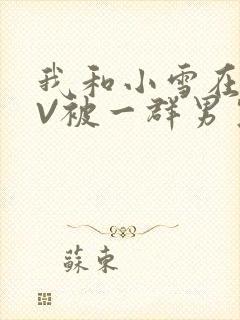 我和小雪在
V被一群男
蘇東